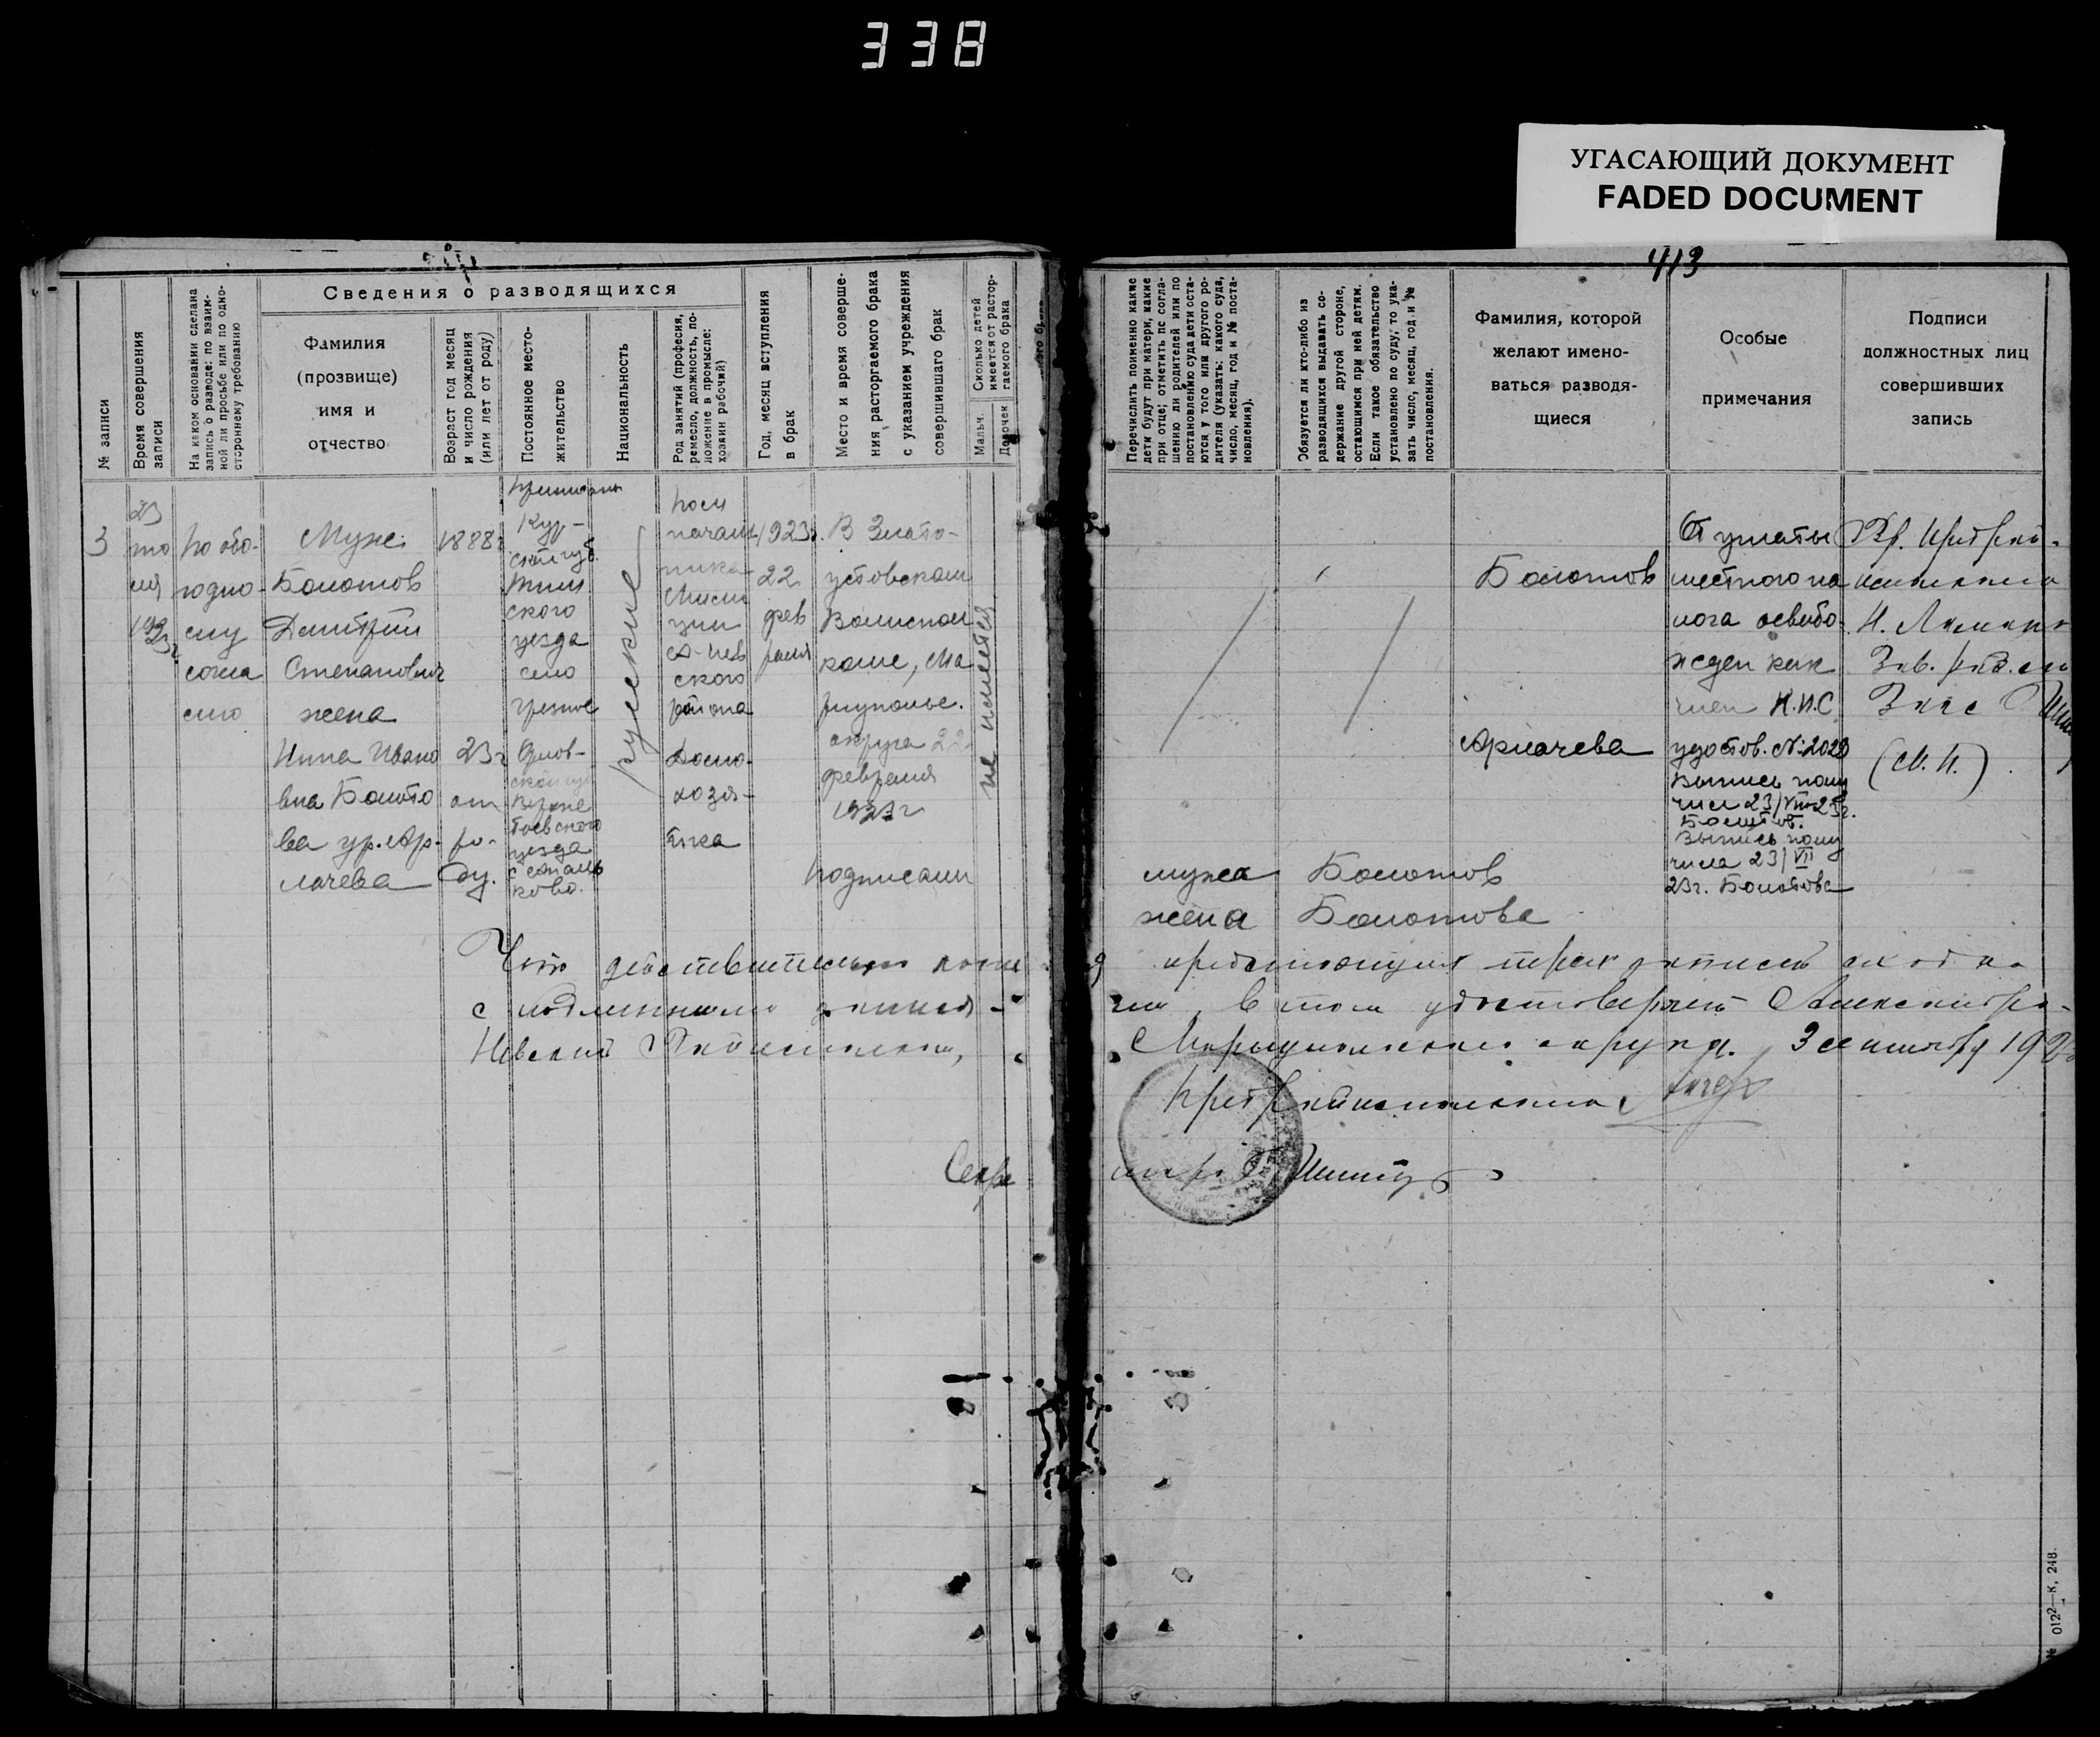 338
УГАСАЮЩИЙ ДОКУМЕНТ
FADED DOCUMENT
413
№ записи
Время совершения
записи
На каком основании сделана
запись о разводе: по взаим-
ной ли просьбе или по одно-
стороннему требованию
Сведения о разводящихся
Фамилия
(прозвище)
имя и
отчество
Возраст год месяц
и число рождения
(или лет от роду)
Постоянное место-
жительство
Национальность
Род занятий (професия,
ремесло, должность, по-
ложение в промысле:
хозяин рабочий)
Год, месяц вступления
в брак
Место и время соверше-
ния расторгаемого брака
с указанием учреждения
совершившего брак
Сколько детей
имеется от растор-
гаемого брака
Мальч.
Девочек
Перечислить поименно какие
дети будут при матери, какие
при отце; отметить по согла-
шению ли родителей или по
постановлению суда дети оста-
ются у того или другого ро-
дителя (указать: какого суда,
число, месяц, год и № поста-
новления).
Обязуется ли кто-либо из
разводящихся выдавать со-
держание другой стороне,
остающимся при ней детям.
Если такое обязательство
установлено по суду, то ука-
зать число, месяц, год и №
постановления.
Фамилия, которой
желают имено-
ваться разводя-
щиеся
Особые
примечания
Подписи
должностных лиц
совершивших
запись
3
23
июля
1923г
По обо-
юдно-
му
согла
сию
Муж
Болотов
Дмитрий
Степанович
жена
Нина Ивано
вна Болото
ва ур. Ар-
лачева
1888г
23г
от
ро-
ду.
Кур-
ской губ.
Тим
ского
уезда
село
Орлов-
ской губ
уезда
русские
Поч
начал
ника
Милиции
А-Нев
ского
района
Домо-
хозя-
йка
1923г.
22
фев
раля
В Злато-
устовском
Волиспол
коме, Ма
риуполь.
округа 22
февраля
1923г
не имеется
Болотов
Арлачева
От уплаты
местного на
лога освобо
жден как
член К.Н.С
удостов. № 2028
Выпись полу
чил 23/VII-23г.
Болотов.
Выпись полу
чила 23/VII
23г. Болотова
(М. П.)
Подписали
мужа Болотов
жена Болотова
Что действительно копия
с подлинным
в том удостоверяет Александро-
Невский Райисполком,
Мариупольского округа. 3 сентября 192
Предрайисполкома
Секре
таро
№ 0122—К, 248.